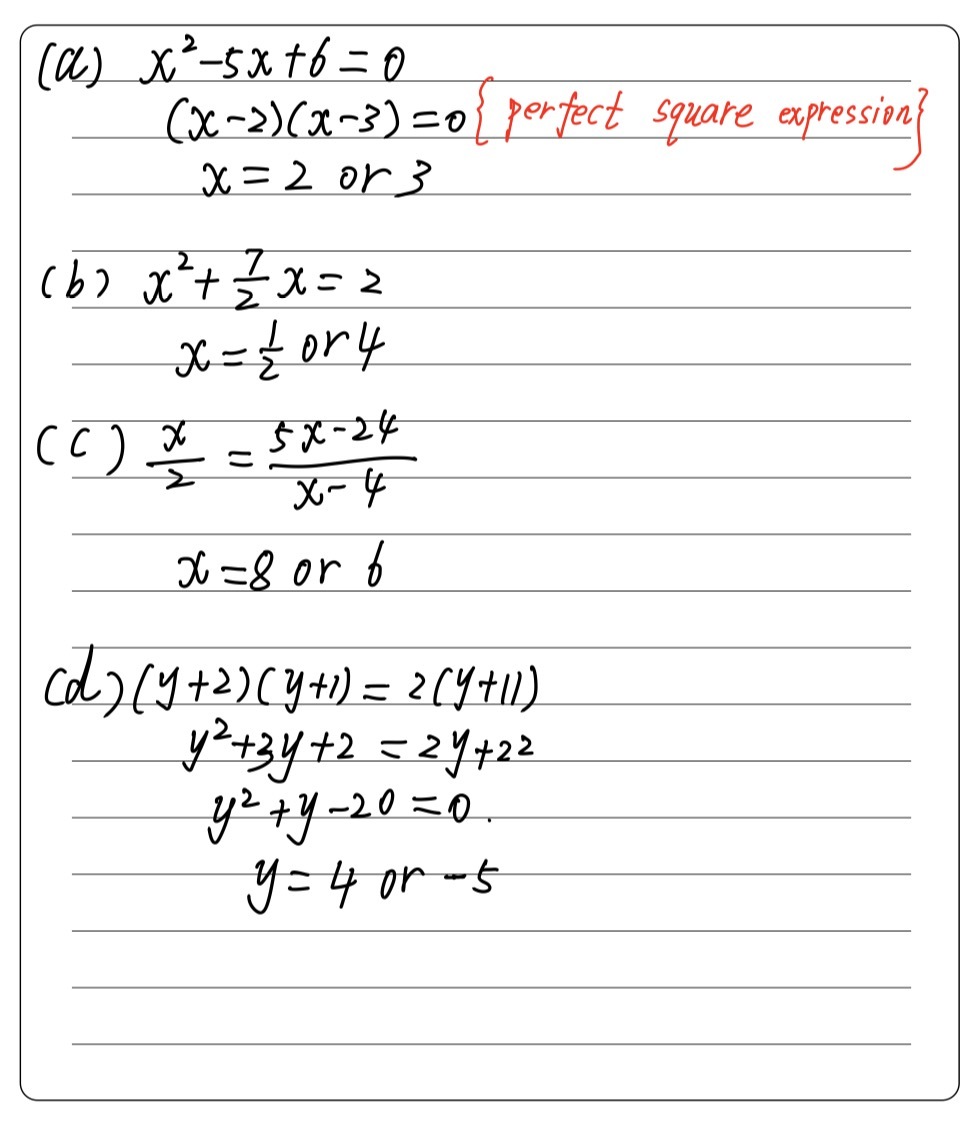 (a) x²-5x+6=0
(x-2)(x-3)=0 {perfect square expression}
x=2 or 3
(b) x²+7/2x=2
x=1/2 or 4
(c) x/2=5x-24/x-4
x=8 or 6
(d) (y+2)(y+1)=2(y+11)
y²+3y+2=2y+22
y²+y-20=0.
y=4 or -5